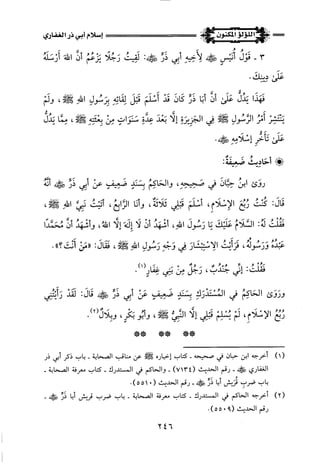 اللؤلؤ المكنون
إسلام أبي ذر الغفاري
٣ - قَوْلُ أُنَيْسٍ ﷺ لِأَخِيهِ أَبِي ذَرٍّ ﷺ: لَقِيتُ رَجُلًا يَزْعُمُ أَنَّ اللهَ أَرْسَلَهُ
عَلَى دِينِكَ.
فَهَذَا يَدُلُّ عَلَى أَنَّ أَبَا ذَرٍّ كَانَ قَدْ أَسْلَمَ قَبْلَ لِقَائِهِ بِرَسُولِ اللهِ ﷺ، ولَمْ
يَنْتَشِرْ أَمْرُ الرَّسُولِ ﷺ فِي الجَزِيرَةِ إِلَّا بَعْدَ عِدَّةِ سَنَوَاتٍ مِنْ بِعْثَتِهِ ﷺ، مِمَّا يَدُلُّ
عَلَى تَأَخُّرِ إِسْلَامِهِ ﷺ.
* أَحَادِيثُ ضَعِيفَةٌ:
رَوَى ابْنُ حِبَّانَ فِي صَحِيحِهِ، والحَاكِمُ بِسَنَدٍ ضَعِيفٍ عَنْ أَبِي ذَرٍّ ﷺ أَنَّهُ
قَالَ: كُنْتُ رُبُعَ الإِسْلَامِ، أَسْلَمَ قَبْلِي ثَلَاثَةٌ، وأَنَا الرَّابِعُ، أَتَيْتُ نَبِيَّ اللهِ ﷺ،
فَقُلْتُ لَهُ: السَّلَامُ عَلَيْكَ يَا رَسُولَ اللهِ، أَشْهَدُ أَنْ لَا إِلَهَ إِلَّا اللهُ، وأَشْهَدُ أَنَّ مُحَمَّدًا
عَبْدُهُ وَرَسُولُهُ، فَرَأَيْتُ الِاسْتِبْشَارَ فِي وَجْهِ رَسُولِ اللهِ ﷺ، فَقَالَ: «مَنْ أَنْتَ؟».
فَقُلْتُ: إِنِّي جُنْدُبٌ، رَجُلٌ مِنْ بَنِي غِفَارٍ(١).
ورَوَى الحَاكِمُ فِي المُسْتَدْرَكِ بِسَنَدٍ ضَعِيفٍ عَنْ أَبِي ذَرٍّ ﷺ قَالَ: لَقَدْ رَأَيْتُنِي
رُبُعَ الإِسْلَامِ، لَمْ يُسْلِمْ قَبْلِي إِلَّا النَّبِيُّ ﷺ، وأَبُو بَكْرٍ، وبِلَالٌ(٢).
** ** **
(١) أخرجه ابن حبان في صحيحه - كتاب إخباره ﷺ عن مناقب الصحابة - باب ذكر أبي ذر
الغفاري ﷺ - رقم الحديث (٧١٣٤) - والحاكم في المستدرك - كتاب معرفة الصحابة -
باب ضرب قريش أبا ذر ﷺ - رقم الحديث (٥٥١٠).
(٢) أخرجه الحاكم في المستدرك - كتاب معرفة الصحابة - باب ضرب قريش أبا ذر ﷺ -
رقم الحديث (٥٥٠٩).
٢٤٦